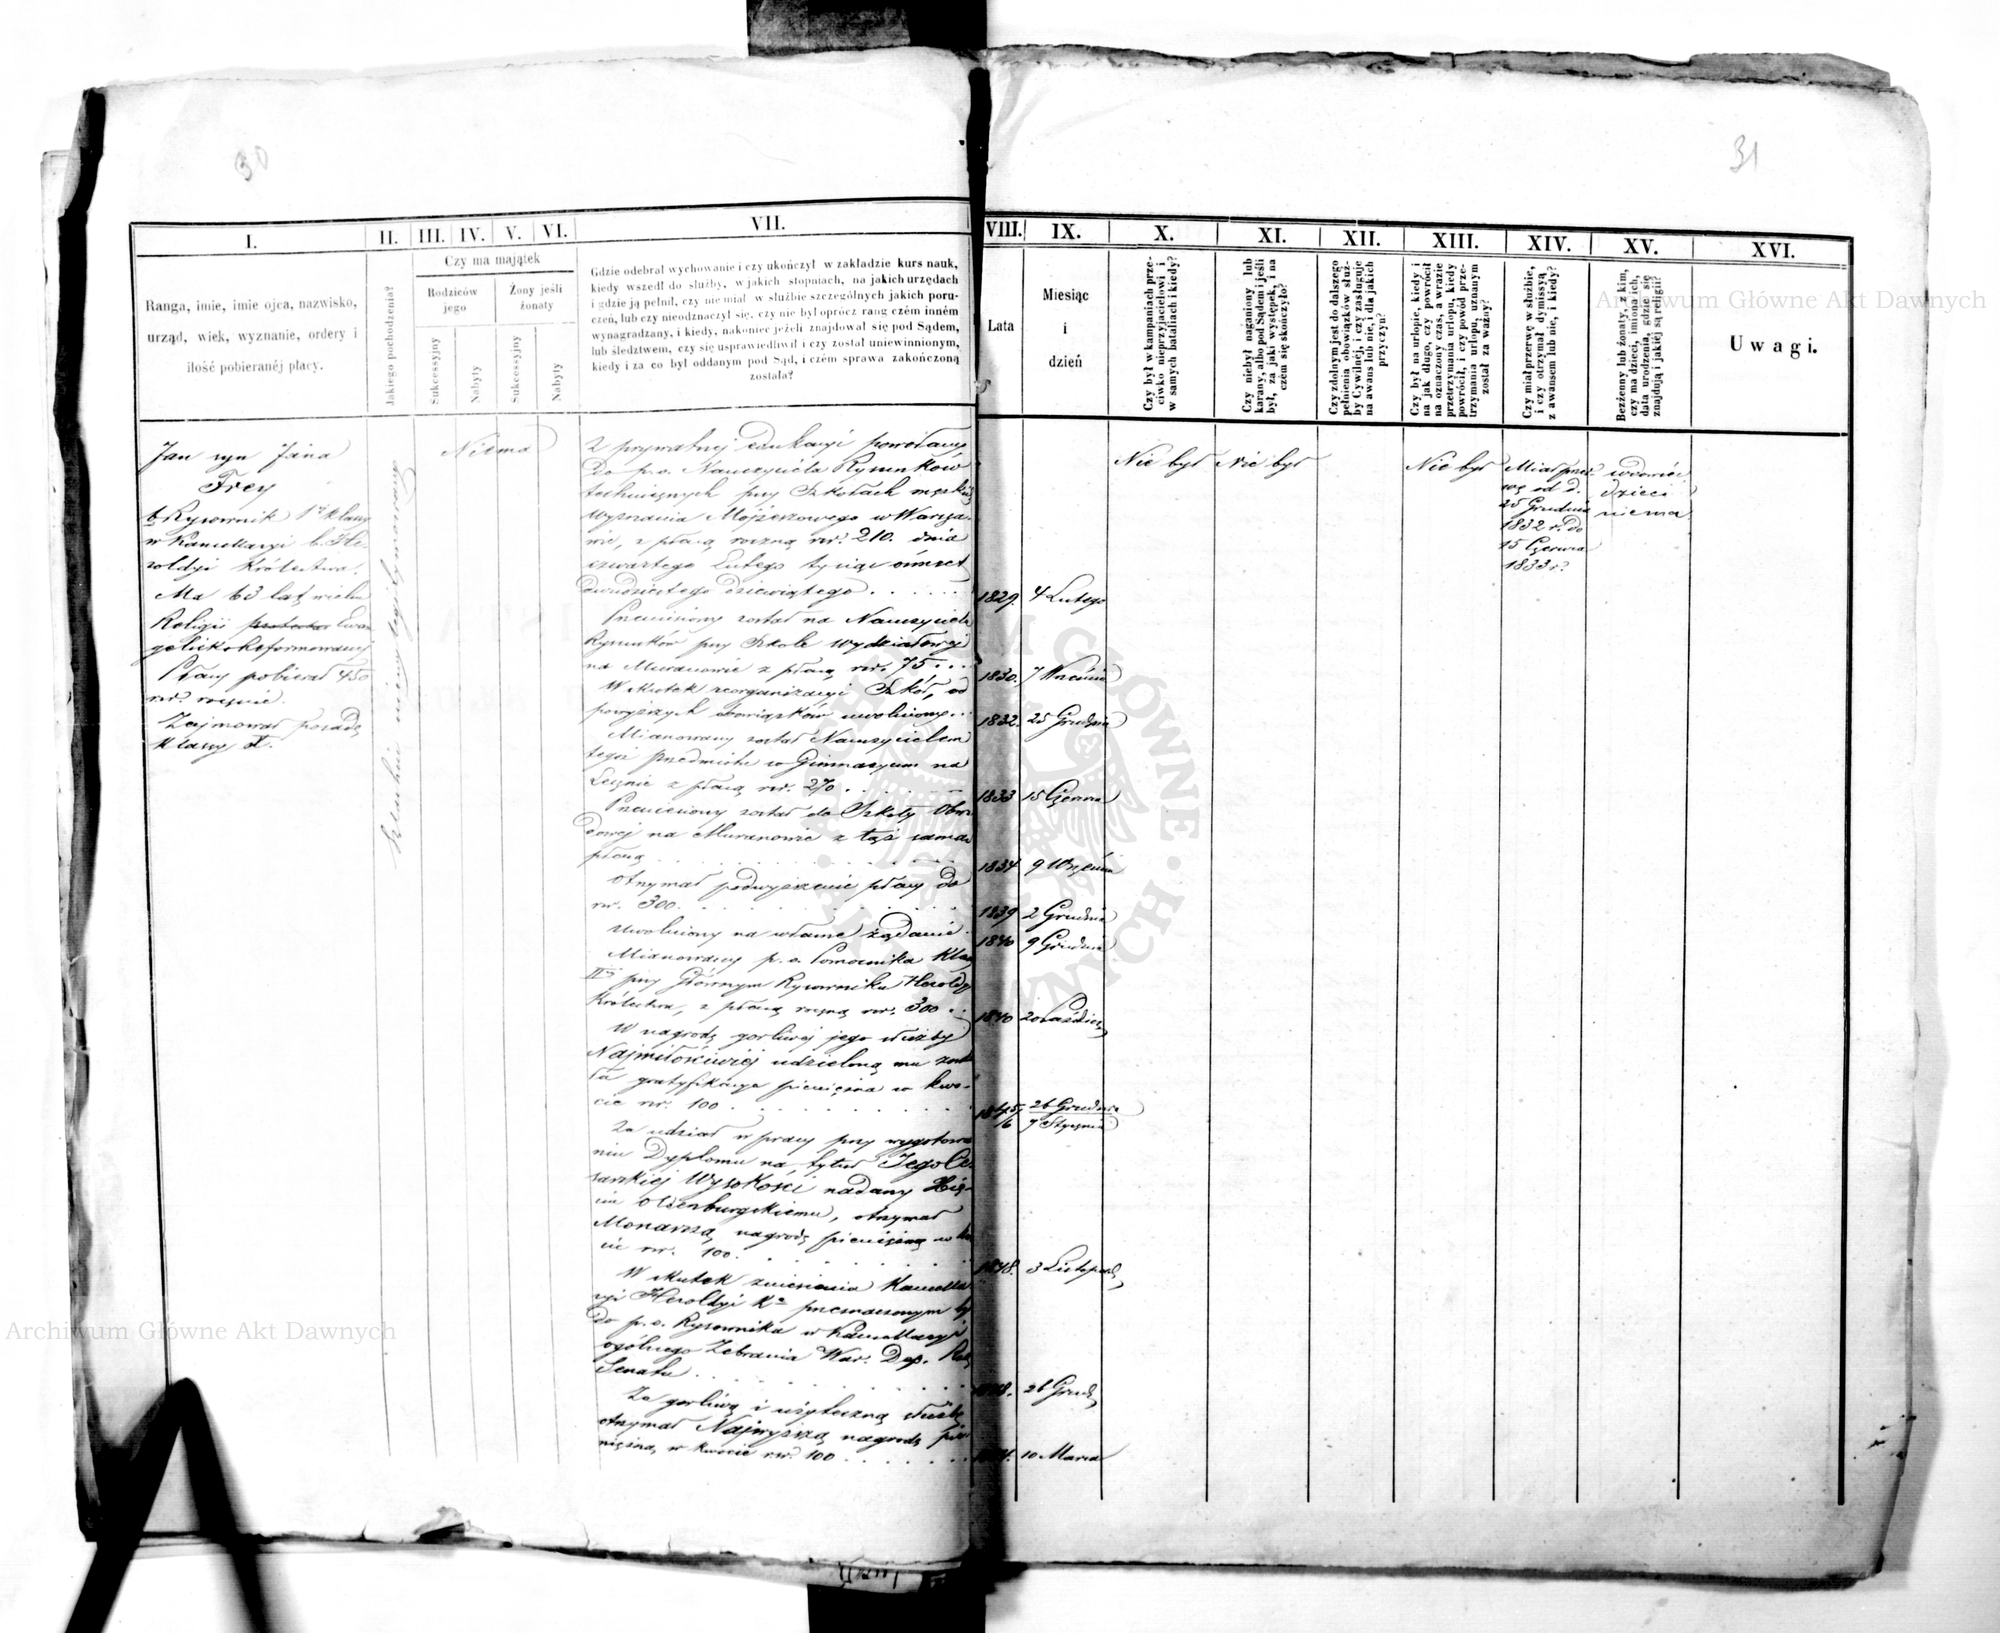 30
31
I.
II.
III.
IV.
V.
VI.
VII.
VIII.
IX.
X.
XI.
XII.
XIII.
XIV.
XV.
XVI.
Ranga, imie, imie ojca, nazwisko,
urząd, wiek, wyznanie, ordery i
ilość pobieranéj płacy.
Jakiego pochodzenia?
Czy ma majątek
Rodziców
jego
Żony jeśli
żonaty
Sukcessyjny
Nabyty
Sukcessyjny
Nabyty
Gdzie odebrał wychowanie i czy ukończył w zakładzie kurs nauk,
kiedy wszedł do służby, w jakich stopniach, na jakich urzędach
i gdzie ją pełnił, czy nie miał w służbie szczególnych jakich poru-
czeń, lub czy nieodznaczył się, czy nie był oprócz rang czém inném
wynagradzany, i kiedy, nakoniec jeżeli znajdował się pod Sądem,
lub śledztwem, czy się usprawiedliwił i czy został uniewinnionym,
kiedy i za co był oddanym pod Sąd, i czém sprawa zakończoną
została?
Lata
Miesiąc
i
dzień
Czy był w kampaniach prze-
ciwko nieprzyjacielowi i
w samych bataliach i kiedy?
Czy niebył naganiony lub
karany, albo pod Sądem i jeśli
był, za jaki występek, i na
czém się skończyło?
Czy zdolnym jest do dalszego
pełnienia obowiązków służ-
by Cywilnéj, i czy zasługuje
na awans lub nie, i dla jakich
przyczyn?
Czy był na urlopie, kiedy i
na jak długo, czy powrócił
na oznaczony czas, a w razie
przetrzymania urlopu, kiedy
powrócił, i czy powód prze-
trzymania urlopu, uznanym
został za ważny?
Czy miał przerwę w służbie,
i czy otrzymał dymissyą
z awansem lub nie, i kiedy?
Bezżenny lub żonaty, z kim,
czy ma dzieci, imiona ich,
data urodzenia, gdzie się
znajdują i jakiéj są religii?
Uwagi.
Jan syn Jana
Frey
b. Rysownik 1éj klassy
w Kancellaryi b. He-
roldyi Królestwa.
Ma 63 lat wieku
Religii Ewan
gelicko Reformowanéj
Płacy pobierał 450
rsr. rocznie.
Zajmował posadę
klassy
Niema
Z prywatnéj edukacyi powołany
do p. o. Nauczyciela Rysunków
technicznych przy Szkołach męskich
wyznania Mojżeszowego w Warsza-
wie, z płacą roczną rsr. 210. dnia
czwartego Lutego tysiąc ośmset
dwudziestego dziewiątego
1829. 4 Lutego
Przeniesiony został na Nauczyciela
Rysunków przy Szkole wydziałowéj
na Muranowie z płacą rsr. 75
1830. 7 Września
W skutek reorganizacyi Szkół, od
powyższych obowiązków uwolniony
1832. 25 Grudnia
Mianowany został Nauczycielem
tegoż przedmiotu w Gimnazyum na
Lesznie z płacą rsr. 270
1833 15 Czerwca
Przeniesiony został do Szkoły Obwo
dowéj na Muranowie z tąż samą
płacą
1834 9 Września
Otrzymał podwyższenie płacy do
rsr. 300
1839 2 Grudnia
Uwolniony na własne żądanie
1840 9 Grudnia
Mianowany p. o. Pomocnika klassy
IIéj przy Głównym Rysowniku Heroldyi
Królestwa, z płacą roczną rsr. 300
1840
W nagrodę gorliwéj jego służby
Najmiłościwiéj udzieloną mu zosta
ła gratyfikacya pieniężna w kwo-
cie rsr. 100
1845/6 26 Grudnia / 7 Stycznia
Za udział w pracy przy wygotowa
niu Dyplomu na tytuł Jego Ce
sarskiéj Wysokości nadany Xię-
ciu Oldenburgskiemu, otrzymał
Monarszą nagrodę pieniężną w kwo
cie rsr. 100
1848. 3 Listopada
W skutek zniesienia Kancella
ryi Heroldyi Kr przeznaczonym był
do p. o. Rysownika w Kancellaryi
ogólnego Zebrania War. Dep. Rzą
Senatu
26 Grud
Za gorliwą i użyteczną służbę
otrzymał Najwyższą nagrodę pie
niężną w kwocie rsr. 100
10 Marca
Nie był
Nie był
Nie był
Miał przer-
wę od d.
25 Grudnia
1832 r. do
15 Czerwca
1833 r.
wdowiec
dzieci
niema
Archiwum Główne Akt Dawnych
Archiwum Główne Akt Dawnych